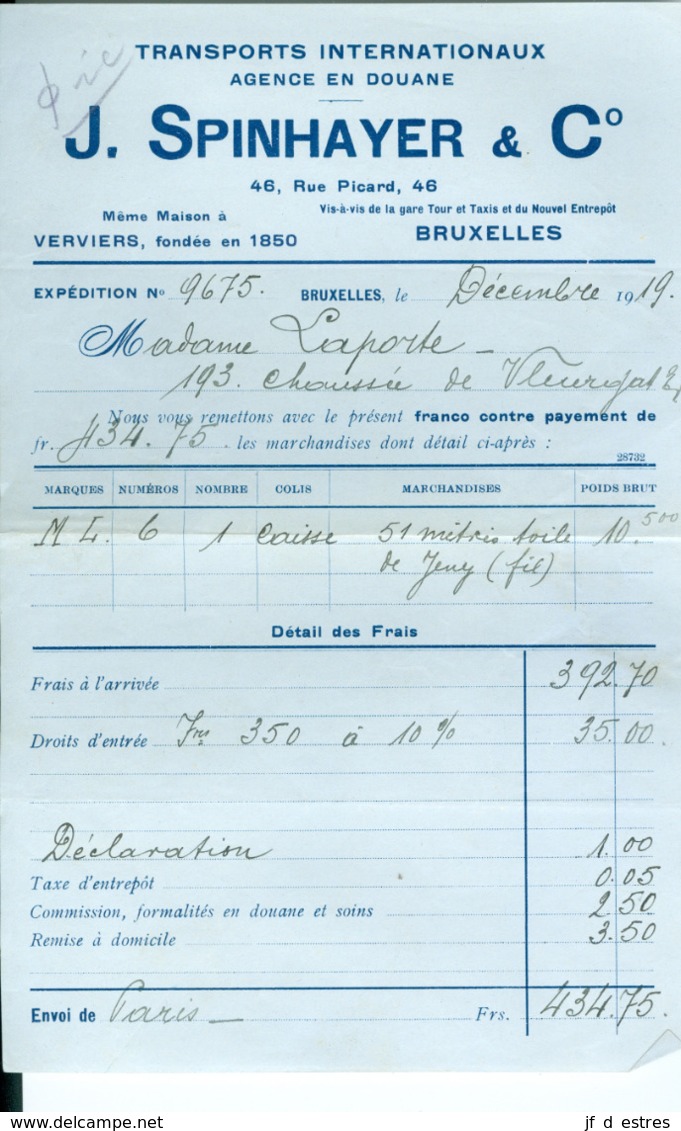 TRANSPORTS INTERNATIONAUX
AGENCE EN DOUANE
J. SPINHAYER & Cº
46, Rue Picard, 46
Même Maison à
VERVIERS, fondée en 1850
Vis-à-vis de la gare Tour et Taxis et du Nouvel Entrepôt
BRUXELLES
EXPÉDITION Nº 9675. BRUXELLES, le Décembre 1919.
Madame Laporte –
193. Chaussée de Vleurgat
Nous vous remettons avec le présent franco contre payement de
fr. 434.75 les marchandises dont détail ci-après :
28732
MARQUES NUMÉROS NOMBRE COLIS MARCHANDISES POIDS BRUT
M L. 6 1 caisse 51 métris toile 10.500
de Jeuy (fil)
Détail des Frais
Frais à l'arrivée 392.70
Droits d'entrée Frs 350 à 10% 35.00.
Déclaration 1.00
Taxe d'entrepôt 0.05
Commission, formalités en douane et soins 2.50
Remise à domicile 3.50
Envoi de Paris – Frs. 434.75.
jf d estres